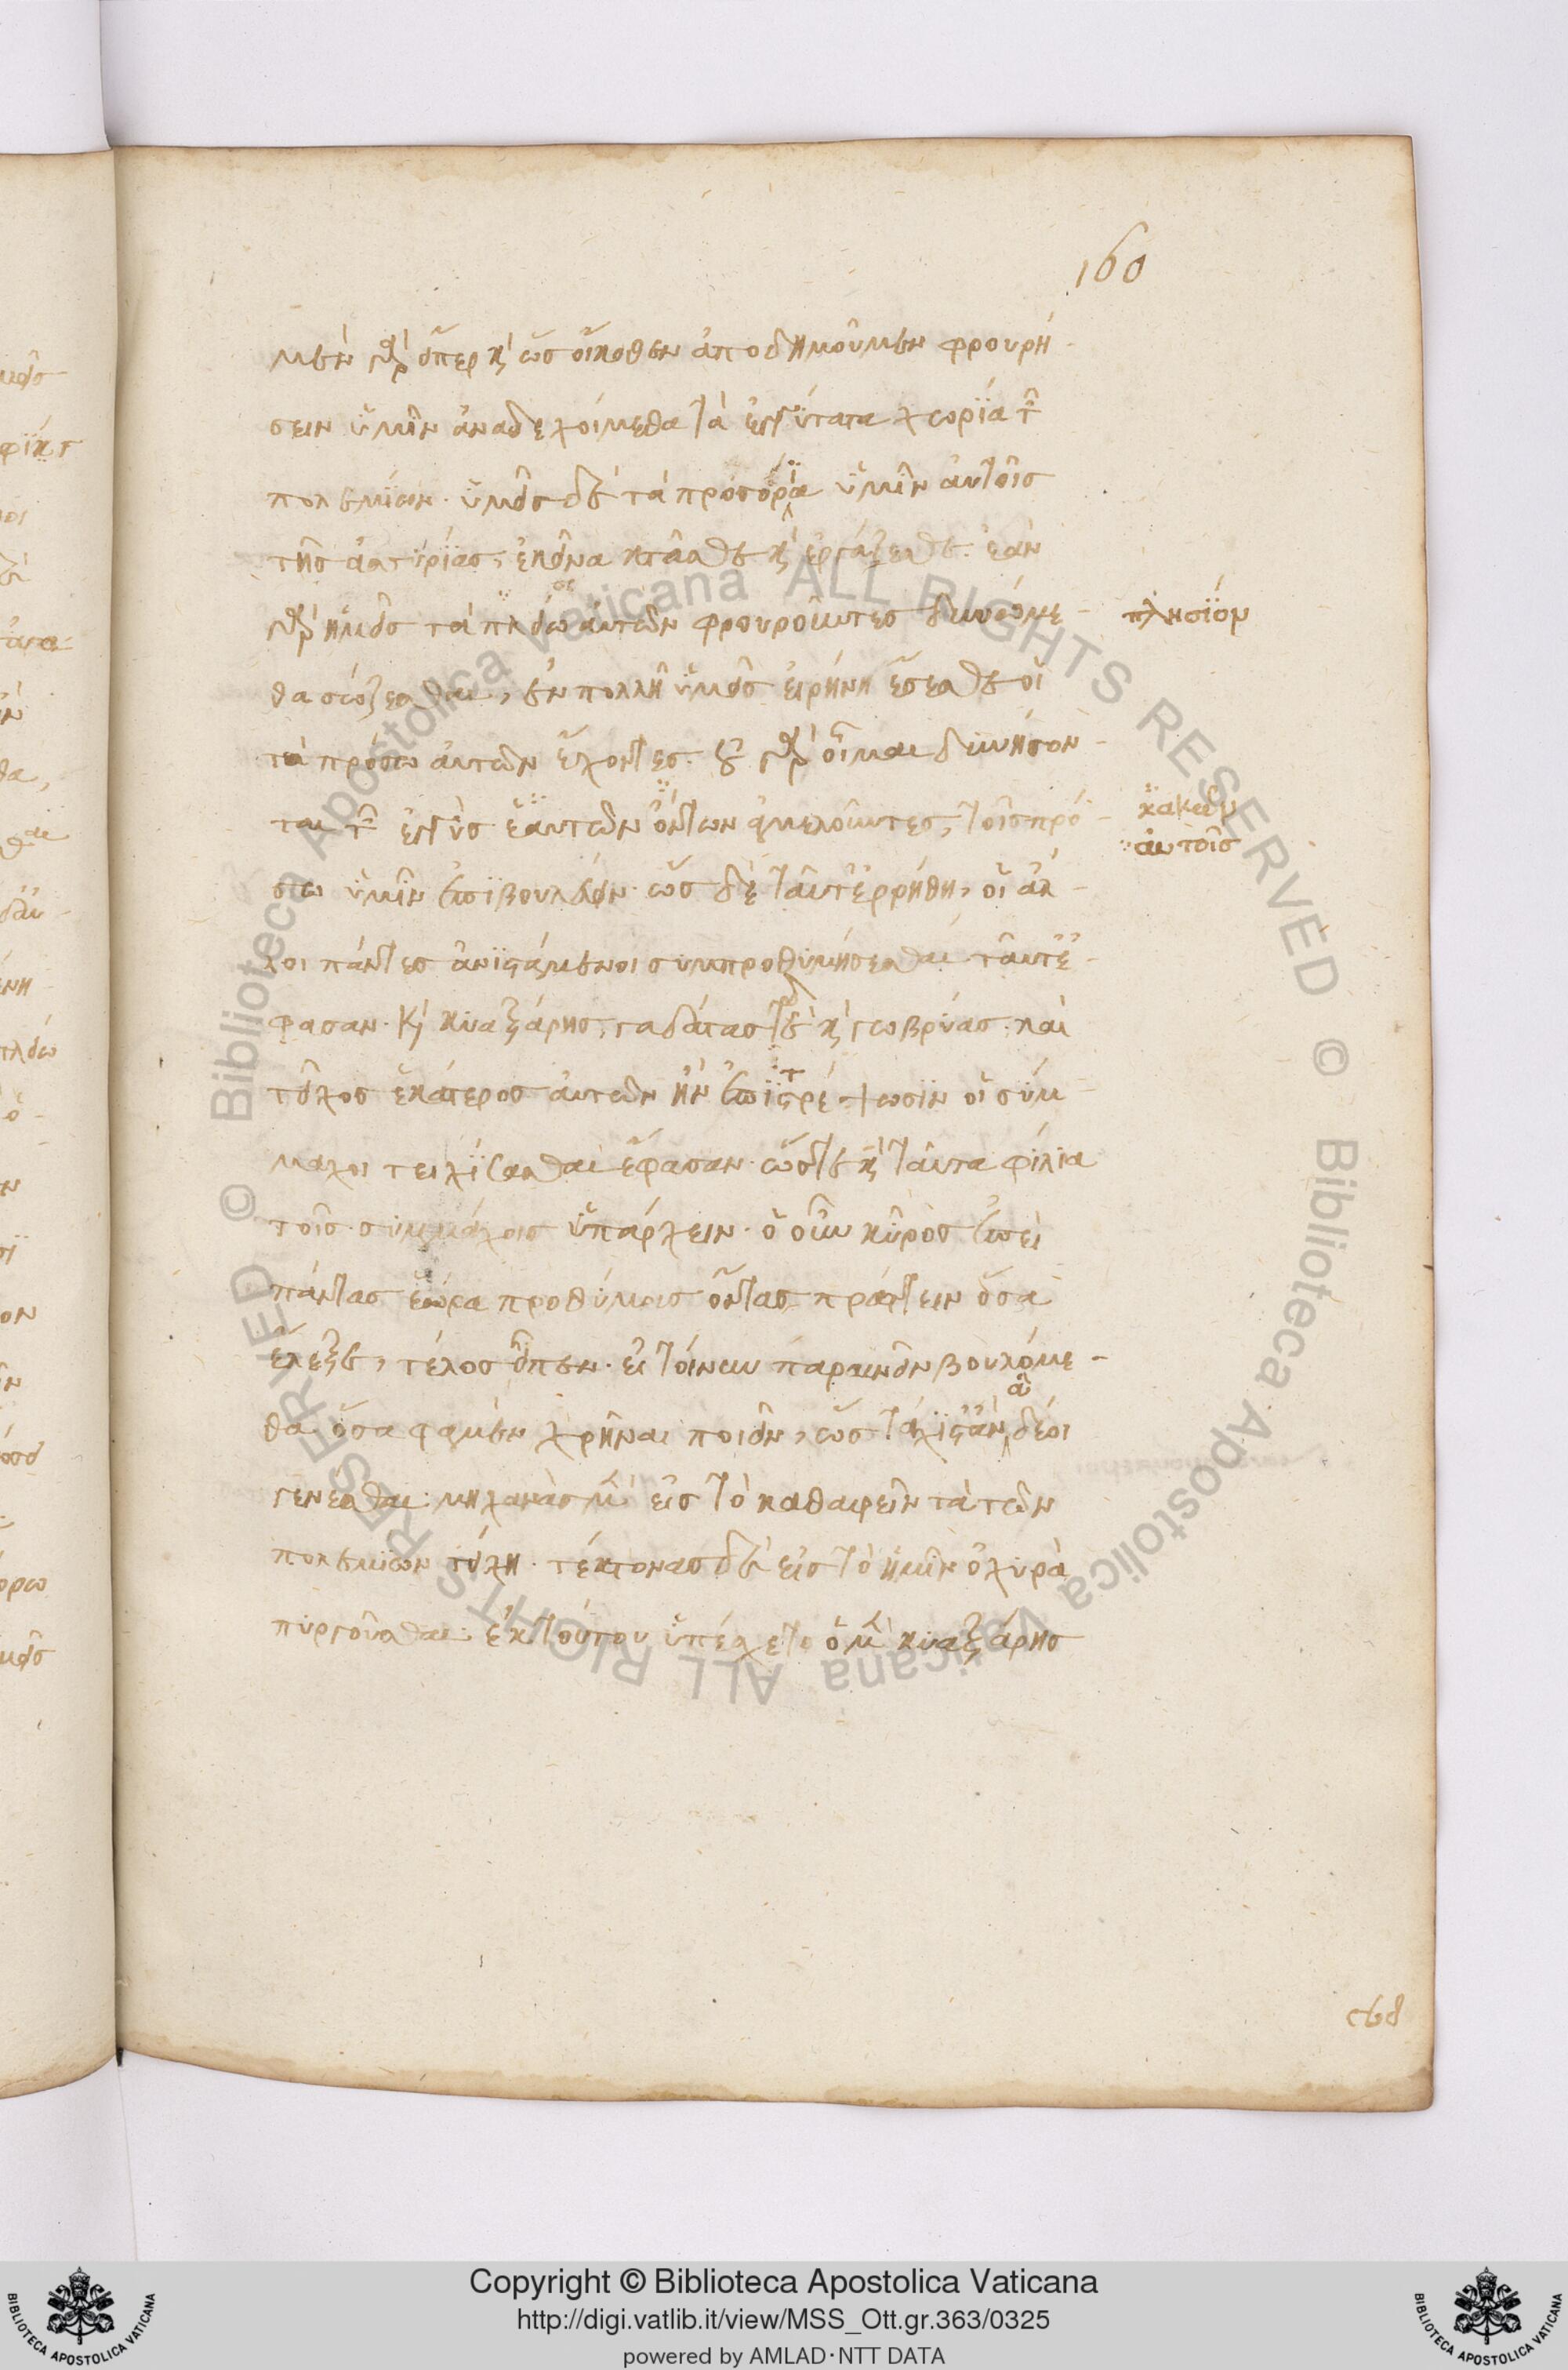 160
μὲν γὰρ ὅπερ καὶ ὡς οἴκοθεν ἀποδημοῦμεν φρουρή-
σειν ὑμῖν ἀναδεχοίμεθα τὰ ἐγγύτατα χωρία τῶν
πολεμίων. ὑμᾶς δὲ τὰ πρόσορα ὑμῖν αὐτοῖς
τῆς ἀσυρίας, ἐκεῖνα κτᾶσθε καὶ ἐργάζεσθε. ἐὰν
γὰρ ἡμεῖς τὰ πλείω αὐτῶν φρουροῦντες δυνώμε-
πλησίον
θα σώζεσθαι, ἐν πολλῇ ὑμεῖς εἰρήνῃ ἔσεσθε οἱ
τὰ πρόσω αὐτῶν ἔχοντες. οὐ γὰρ οἶμαι δυνήσον-
ται τῶν ἐγγὺς ἑαυτῶν ὄντων ἀμελοῦντες, τοῖς πρό-
κακῶν
αὐτοῖς
σω ὑμῖν ἐπιβουλεύειν. ὡς δὲ ταῦτ' ἐρρήθη, οἱ ἄλ-
λοι πάντες ἀνιστάμενοι συμπροθυμήσεσθαι ταῦτ' ἔ-
φασαν. καὶ κυαξάρης, γαδάτας δὲ καὶ γωβρύας. καὶ
τεῖχος ἑκάτερος αὐτῶν ἢν ἐπιτρέψωσιν οἱ σύμ-
μαχοι τειχίσασθαι ἔφασαν. ὥστε καὶ ταῦτα φίλια
τοῖς συμμάχοις ὑπάρχειν. ὁ οὖν κῦρος ἐπεὶ
πάντας ἑώρα προθύμους ὄντας πράττειν ὅσα
ἔλεξε, τέλος εἶπεν. εἰ τοίνυν περαίνειν βουλόμε-
θα ὅσα φαμὲν χρῆναι ποιεῖν, ὡς τάχιστ' ἂν δέοι
γενέσθαι μηχανὰς μὲν εἰς τὸ καθαιρεῖν τὰ τῶν
πολεμίων τείχη. τέκτονας δὲ εἰς τὸ ἡμῖν ὀχυρὰ
πυργοῦσθαι. ἐκ τούτου ὑπέσχετο ὁ μὲν κυαξάρης
Copyright © Biblioteca Apostolica Vaticana
http://digi.vatlib.it/view/MSS_Ott.gr.363/0325
powered by AMLAD·NTT DATA